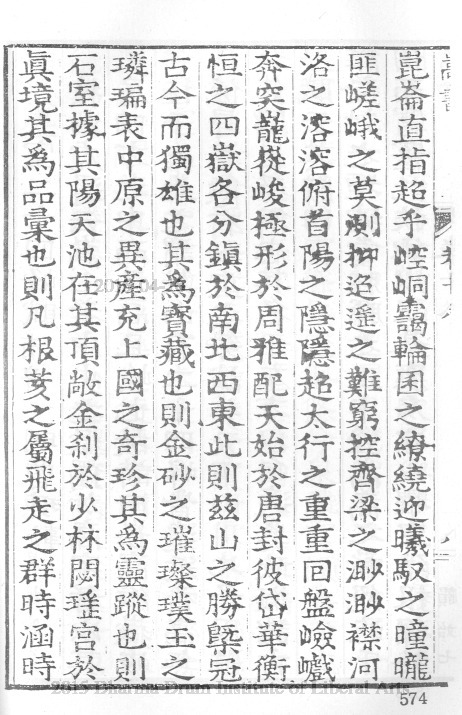 崑崙直指超乎崆峒靄輪囷之繚繞迎曦馭之曈曨
匪嵯峨之莫測抑迢遥之難窮控齊梁之渺渺襟河
洛之溶溶俯首陽之隱隱超太行之重重回盤嶮巇
奔突巃嵸峻極形於周雅配天始於唐封彼岱華衡
恒之四嶽各分鎮於南北西東此則兹山之勝槩冠
古今而獨雄也其為寳藏也則金砂之璀璨璞玉之
璘㻞表中原之異産充上國之奇珍其為靈蹤也則
石室據其陽天池在其頂敞金刹於少林閟瑶宫於
真境其為品彚也則凡根荄之屬飛走之群時涵時
2015 Dharma Drum Institute of Liberal Arts
574